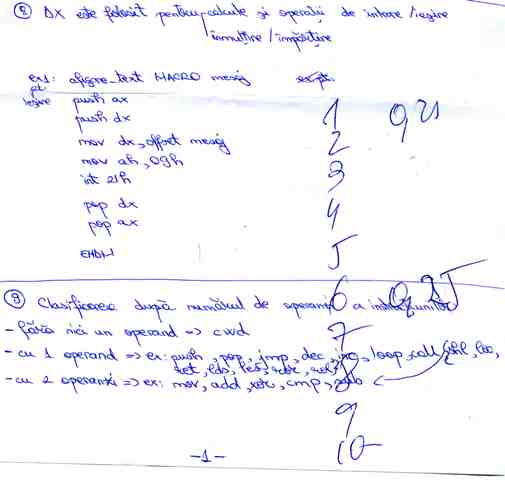 ② DX este folosit pentru calcule și operații de intrare/ieșire
înmulțire/împărțire
ex1: afișre_text MACRO mesaj
pt ieșire
push ax
push dx
mov dx, offset mesaj
mov ah, 09h
int 21h
pop dx
pop ax
ENDM
1
2
3
4
5
6
7
8
9
10
③ Clasificarea după numărul de operanzi a instrucțiunilor
- fără nici un operand => cwd
- cu 1 operand => ex: push, pop, jmp, dec, inc, loop, call
- cu 2 operanzi => ex: mov, add, cmp, sub
-1-